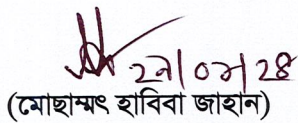 ২৭/০৩/২৪
(মোছাম্মৎ হাবিবা জাহান)